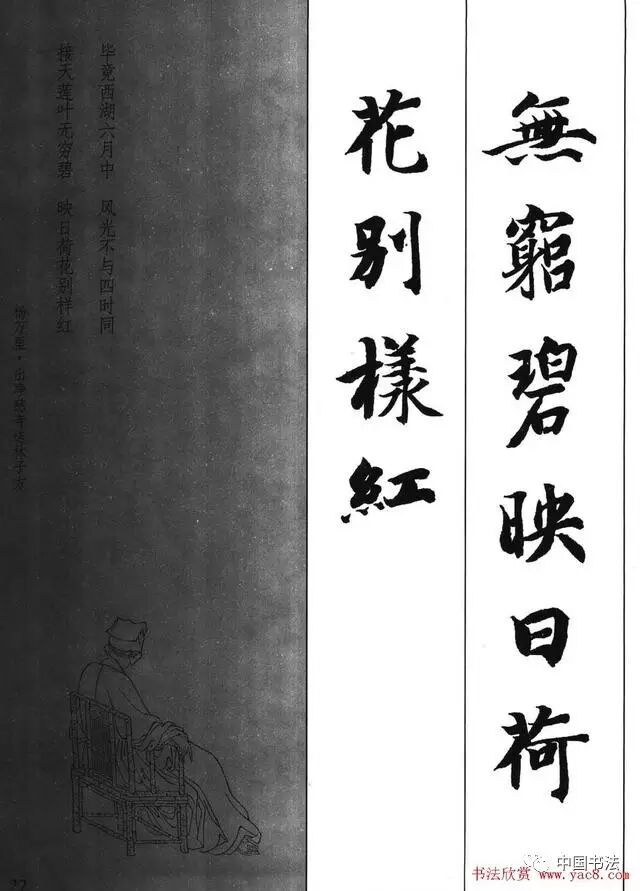 無窮碧映日荷
花别樣紅
毕竟西湖六月中 风光不与四时同
接天莲叶无穷碧 映日荷花别样红
杨万里·出净慈寺送林子方
中国书法
书法欣赏 www.yac8.com